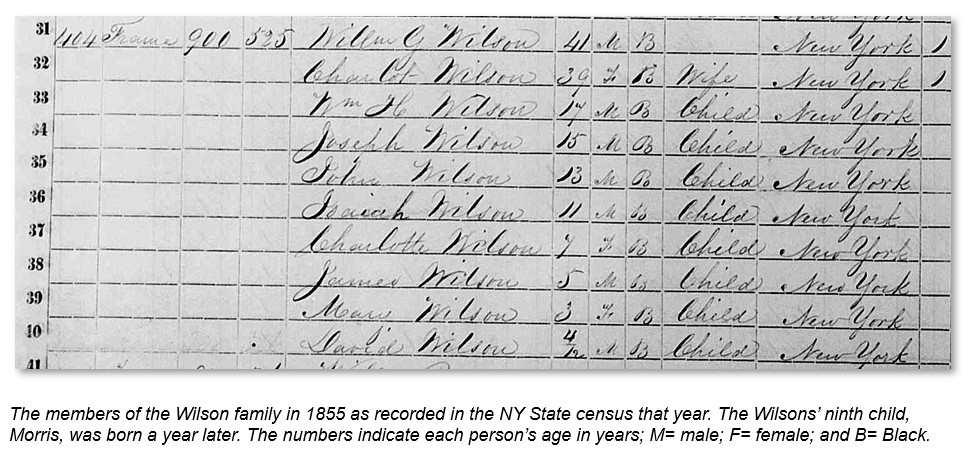 31 404 Frame 900 525 Willm G Wilson 41 M B New York 1
32 Charlot Wilson 39 F B Wife New York 1
33 Wm H Wilson 17 M B Child New York
34 Joseph Wilson 15 M B Child New York
35 John Wilson 13 M B Child New York
36 Isaiah Wilson 11 M B Child New York
37 Charlotte Wilson 7 F B Child New York
38 James Wilson 5 M B Child New York
39 Mary Wilson 3 F B Child New York
40 David Wilson 4/12 M B Child New York
41
The members of the Wilson family in 1855 as recorded in the NY State census that year. The Wilsons’ ninth child,
Morris, was born a year later. The numbers indicate each person’s age in years; M= male; F= female; and B= Black.